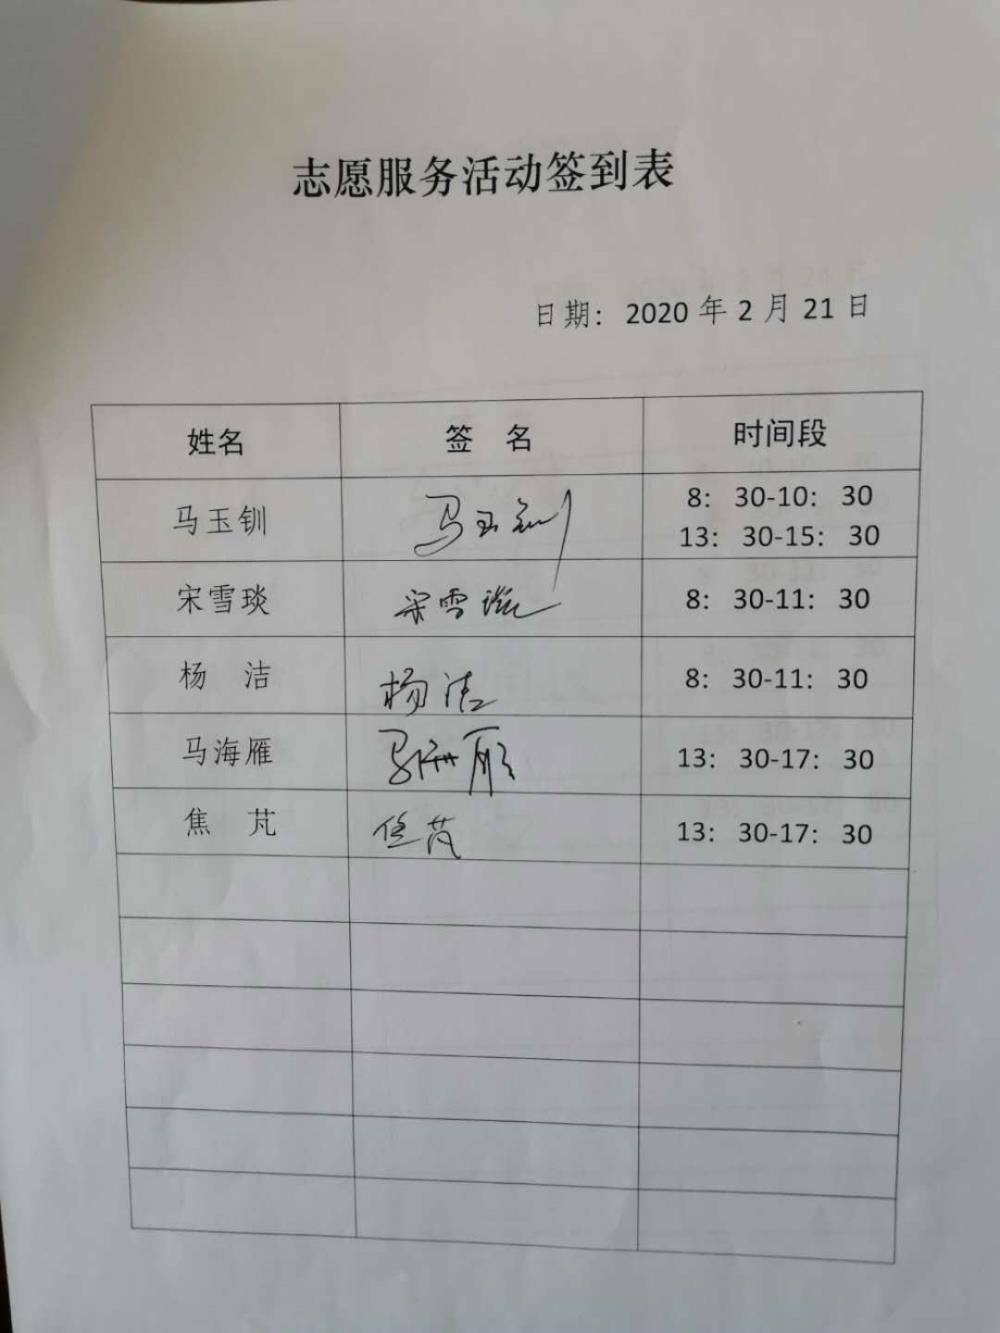 志愿服务活动签到表
日期: 2020 年 2 月 21 日
姓名 签 名 时间段
马玉钏 马玉钏 8: 30-10: 30
13: 30-15: 30
宋雪琰 宋雪琰 8: 30-11: 30
杨 洁 杨洁 8: 30-11: 30
马海雁 马海雁 13: 30-17: 30
焦 芃 焦芃 13: 30-17: 30